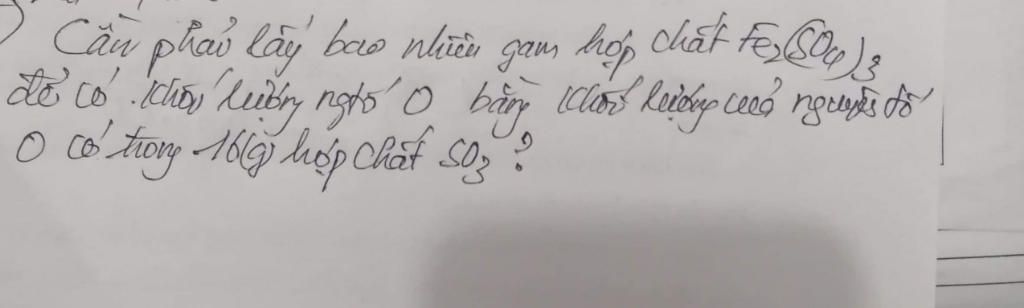 Cần phải lấy bao nhiêu gam hợp chất Fe2(SO4)3
để có khối lượng ngtố O bằng khối lượng của nguyên tố
O có trong 16(g) hợp chất SO3?